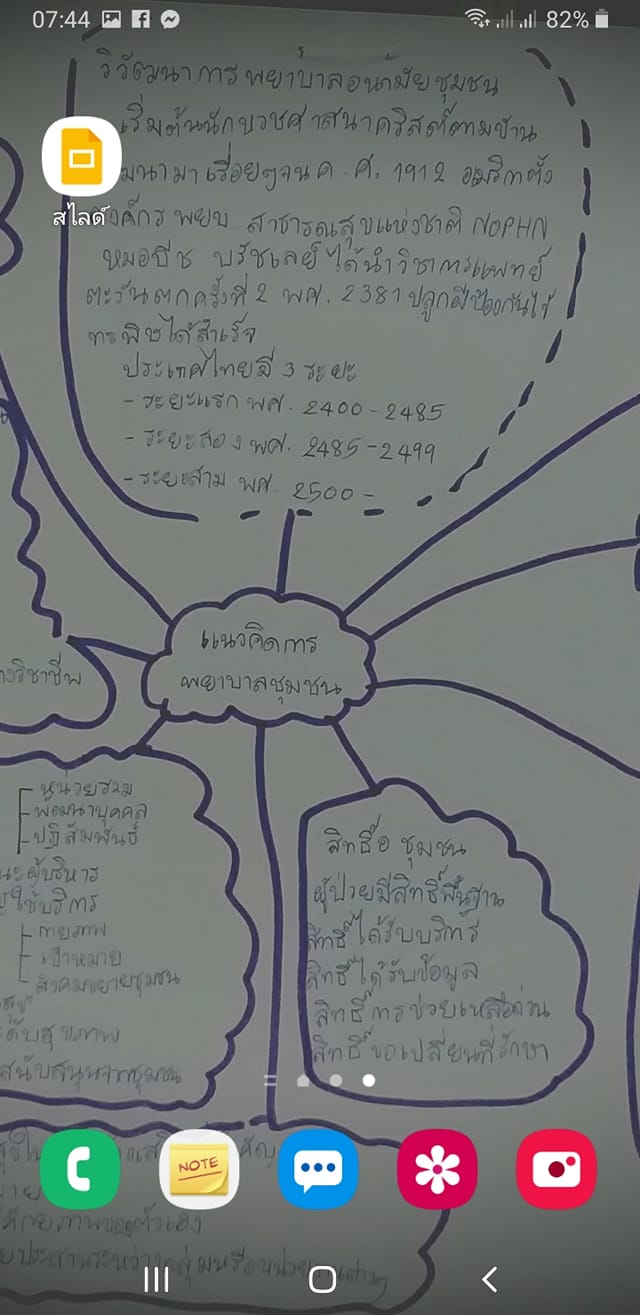 07:44
82%
วิวัฒนาการพยาบาลอนามัยชุมชน
เริ่มต้นนักบวชศาสนาคริสต์ตามบ้าน
มนามาเรื่อยๆจน ค.ศ. 1912 อเมริกาตั้ง
สไลด์
องค์กร พยบ สาธารณสุขแห่งชาติ NOPHN
หมอบีช บรัชเลย์ ได้นำวิชาการแพทย์
ตะวันตกครั้งที่ 2 พศ. 2381 ปลูกฝีป้องกันไข้
ทรพิษได้สำเร็จ
ประเทศไทยมี 3 ระยะ
- ระยะแรก พศ. 2400 - 2485
- ระยะสอง พศ. 2485 - 2499
- ระยะสาม พศ. 2500 -
แนวคิดการ
พยาบาลชุมชน
างวิชาชีพ
หน่วยรวม
พัฒนาบุคคล
ปฏิสัมพันธ์
นะผู้บริหาร
ใช้บริการ
กายภาพ
เป้าหมาย
สังคมขยายชุมชน
ดับสุขภาพ
สนับสนุนจากชุมชน
สิทธิ์อ ชุมชน
ผู้ป่วยมีสิทธิ์พื้นฐาน
สิทธิ์ได้รับบริการ
สิทธิ์ได้รับข้อมูล
สิทธิ์การช่วยเหลือด่วน
สิทธิ์ขอเปลี่ยนที่รักษา
NOTE
ศักยภาพของตัวเอง
ประสานระหว่างกลุ่มหรือหน่วยงานต่างๆ